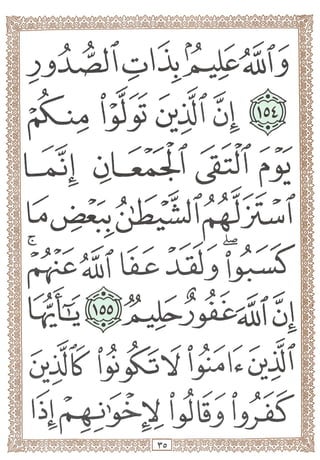 وَٱللَّهُ عَلِيمُۢ بِذَاتِ ٱلصُّدُورِ
١٥٤ إِنَّ ٱلَّذِينَ تَوَلَّوْا۟ مِنكُمْ
يَوْمَ ٱلْتَقَى ٱلْجَمْعَانِ إِنَّمَا
ٱسْتَزَلَّهُمُ ٱلشَّيْطَٰنُ بِبَعْضِ مَا
كَسَبُوا۟ ۖ وَلَقَدْ عَفَا ٱللَّهُ عَنْهُمْ ۗ
إِنَّ ٱللَّهَ غَفُورٌ حَلِيمٌ ١٥٥ يَٰٓأَيُّهَا
ٱلَّذِينَ ءَامَنُوا۟ لَا تَكُونُوا۟ كَٱلَّذِينَ
كَفَرُوا۟ وَقَالُوا۟ لِإِخْوَٰنِهِمْ إِذَا
٣٥